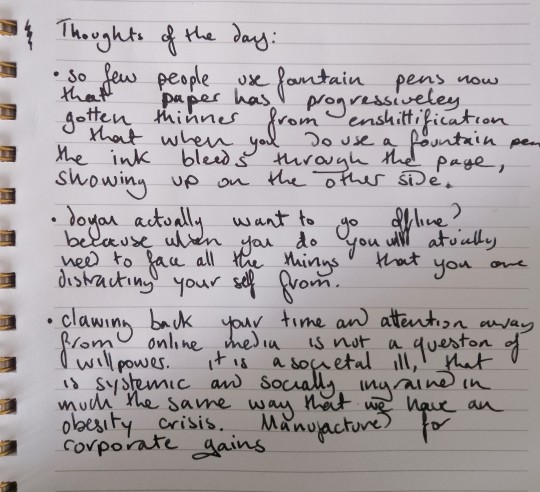 Thoughts of the day:
• so few people use fountain pens now
that paper has progressiveley
gotten thinner from enshittification
that when you do use a fountain pen
the ink bleeds through the page,
showing up on the other side.
• do you actually want to go offline?
because when you do you will atually
need to face all the things that you are
distracting your self from.
• clawing back your time and attention away
from online media is not a queston of
willpower. it is a societal ill, that
is systemic and socially ingrained in
much the same way that we have an
obesity crisis. Manufactured for
corporate gains